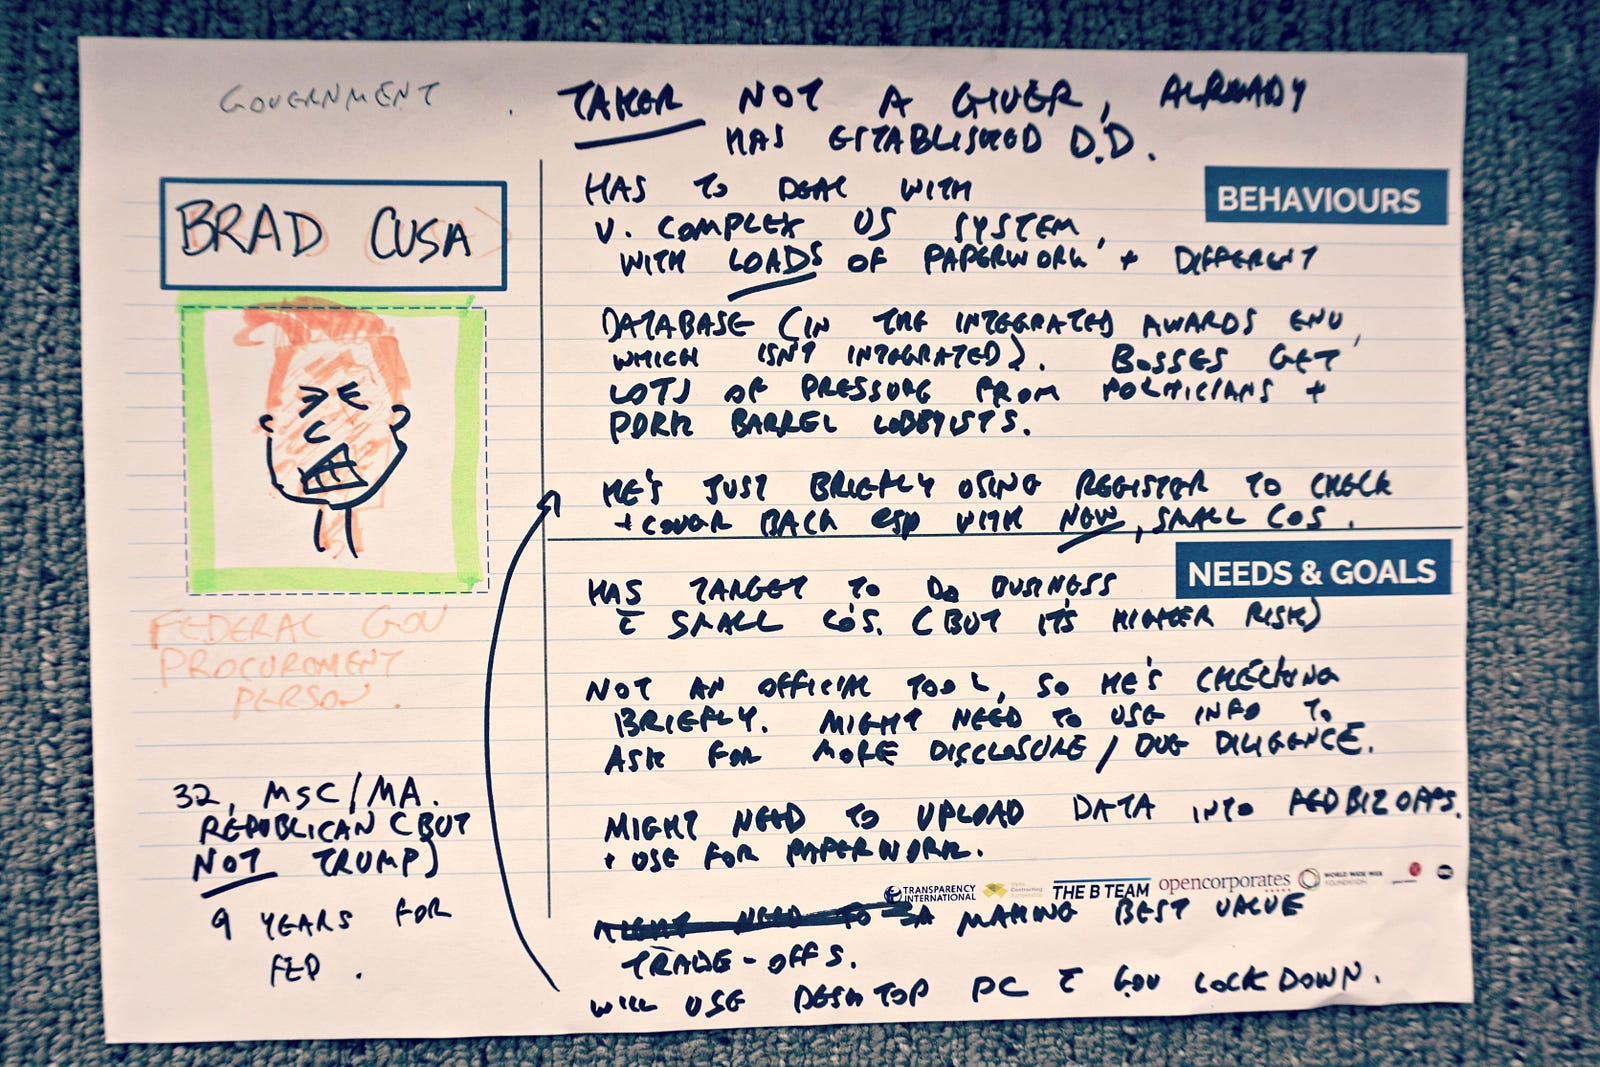 GOVERNMENT
TAKER NOT A GIVER, ALREADY
HAS ESTABLISHED D.D.
BRAD CUSA
FEDERAL GOV
PROCUREMENT
PERSON.
32, MSC/MA.
REPUBLICAN (BUT
NOT TRUMP)
9 YEARS FOR
FED.
BEHAVIOURS
HAS TO DEAL WITH
V. COMPLEX US SYSTEM,
WITH LOADS OF PAPERWORK + DIFFERENT
DATABASE (IN THE INTEGRATED AWARDS ENV,
WHICH ISN'T INTEGRATED). BOSSES GET
LOTS OF PRESSURE FROM POLITICIANS +
PORK BARREL LOBBYISTS.
HE'S JUST BRIEFLY USING REGISTER TO CHECK
+ COVER BACK esp WITH NEW, SMALL COS.
NEEDS & GOALS
HAS TARGET TO DO BUSINESS
SMALL COS. (BUT IT'S HIGHER RISK)
NOT AN OFFICIAL TOOL, SO HE'S CHECKING
BRIEFLY. MIGHT NEED TO USE INFO TO
ASK FOR MORE DISCLOSURE / DUE DILIGENCE.
MIGHT NEED TO UPLOAD DATA INTO FEDBIZOPPS.
+ USE FOR PAPERWORK.
TRANSPARENCY
INTERNATIONAL
Open
Contracting
Partnership
THE B TEAM
opencorporates
WORLD WIDE WEB
FOUNDATION
MIGHT NEED TO
MAKING BEST VALUE
TRADE-OFFS.
WILL USE DESKTOP PC GOV LOCKDOWN.